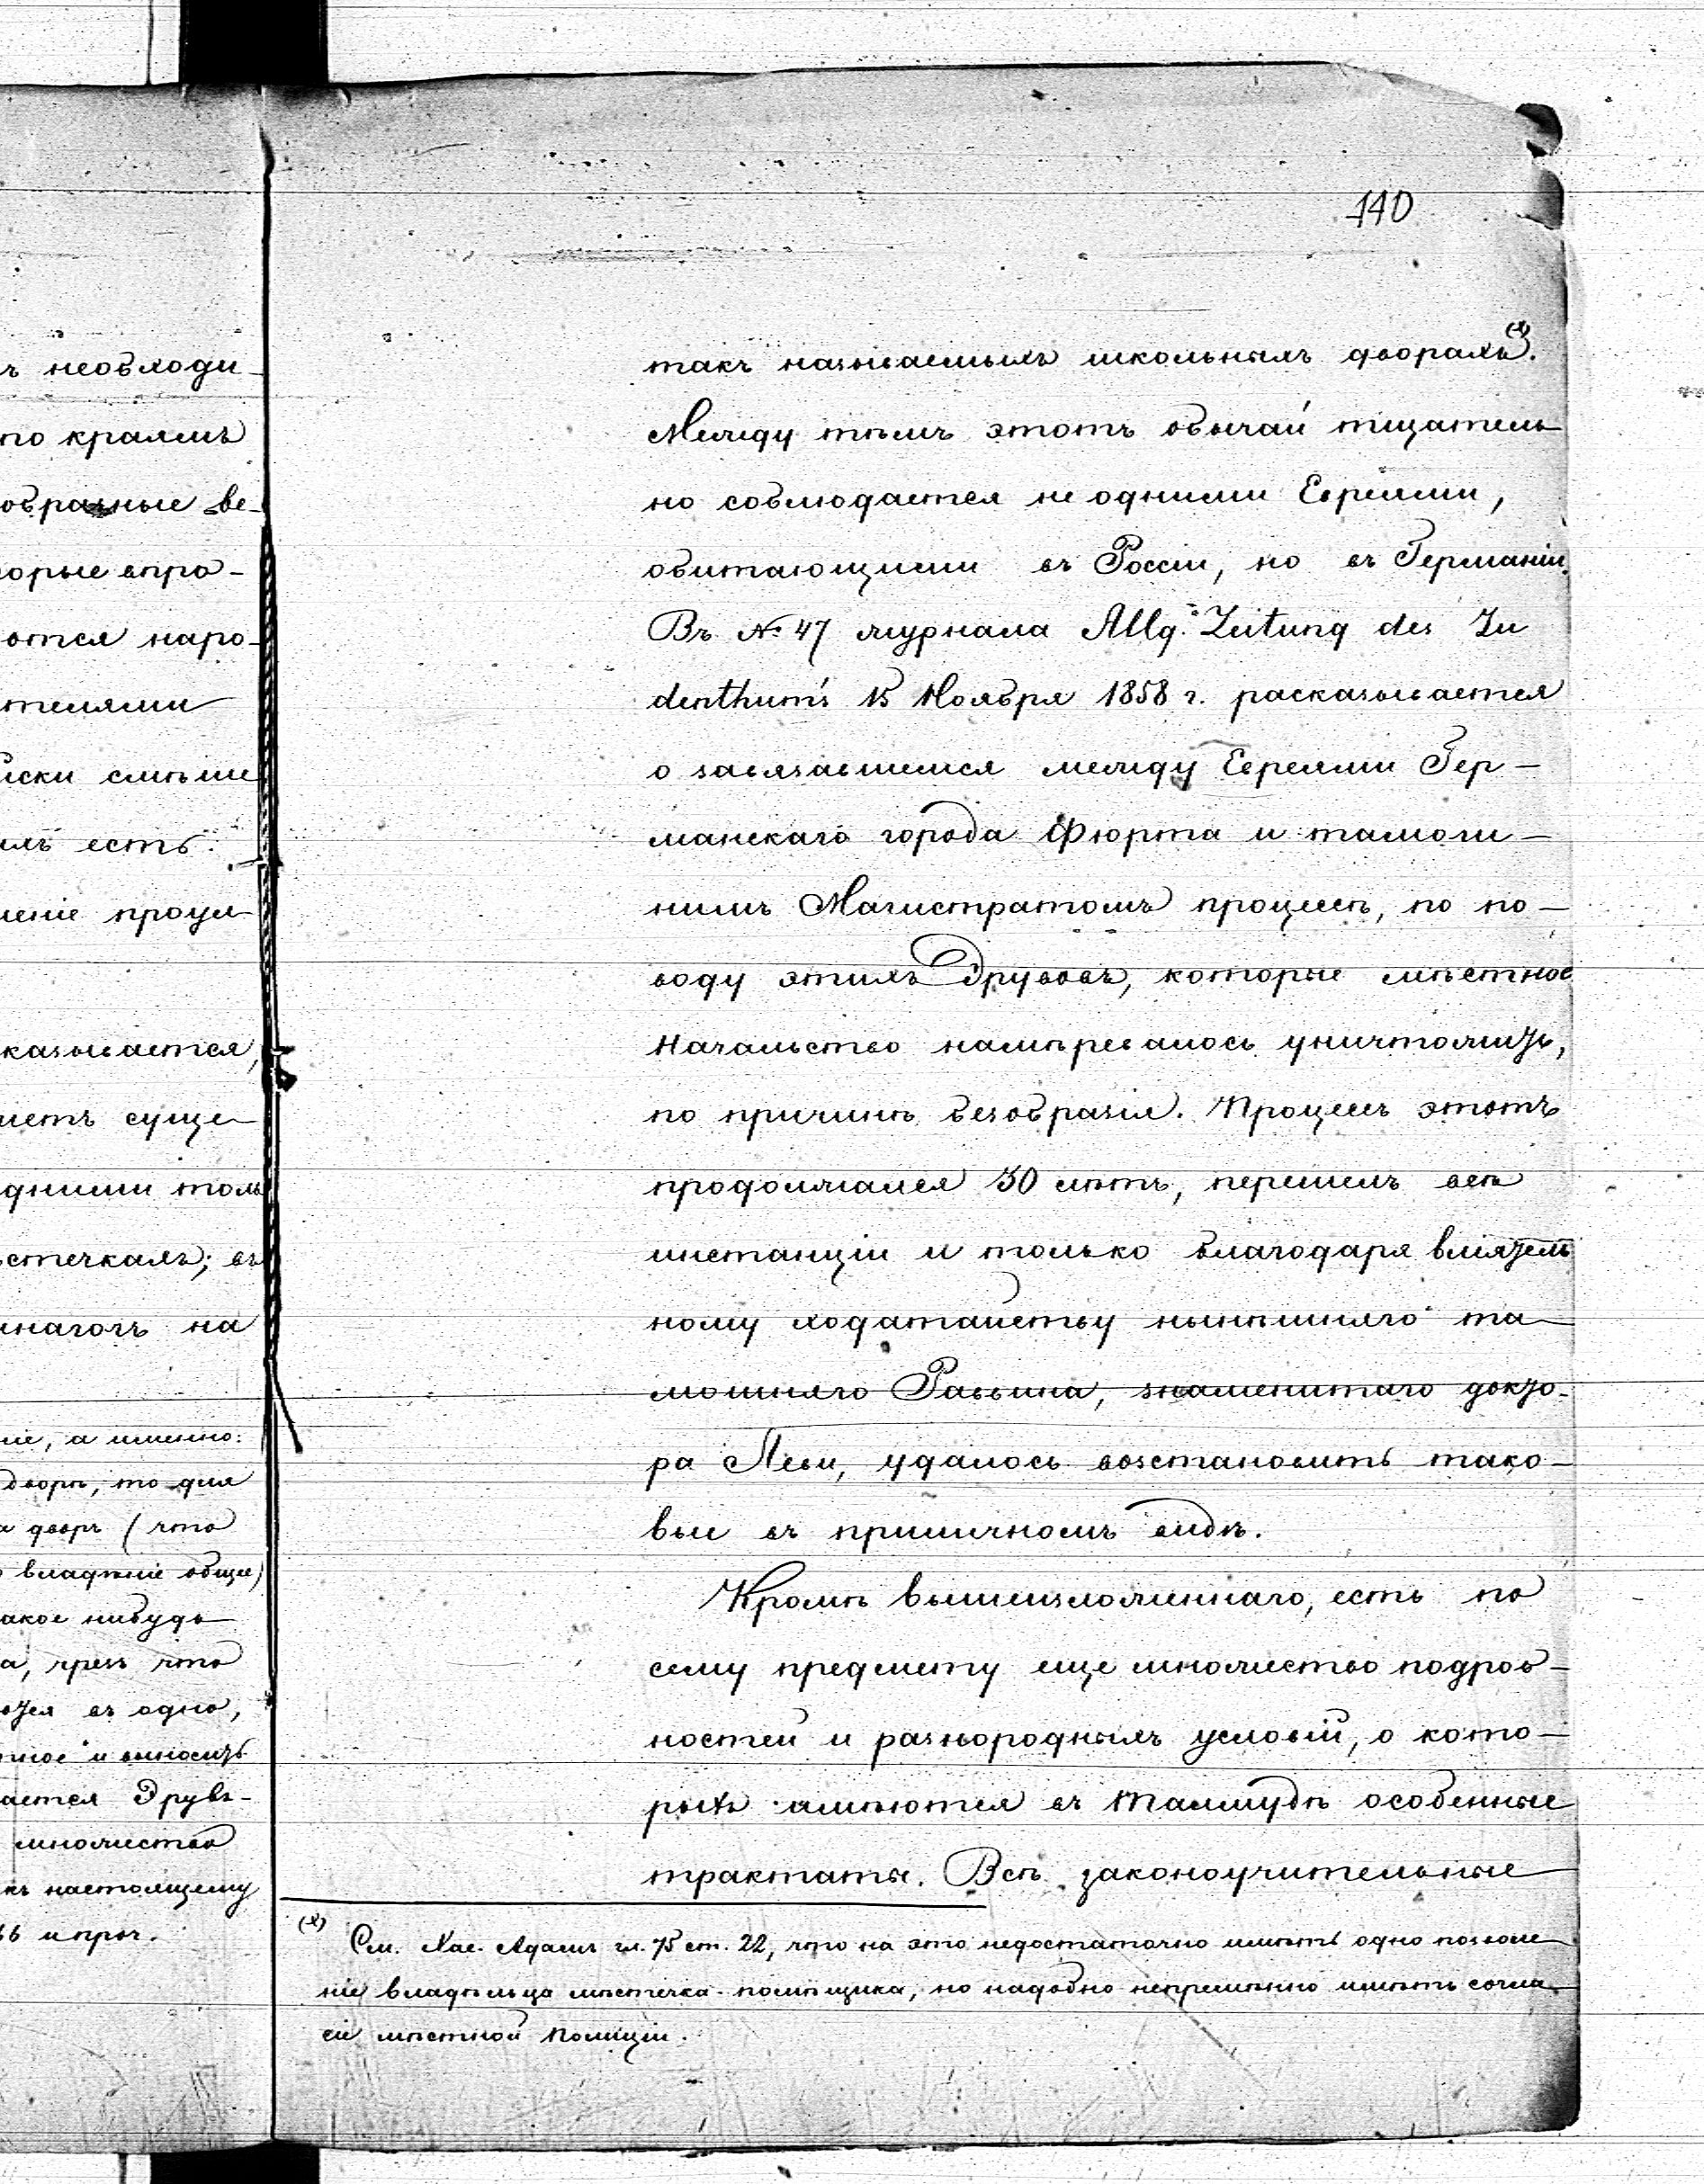 110
такъ называемыхъ школьныхъ дворахъ (х).
Между тѣмъ этотъ обычай тщатель-
но соблюдается не одними Евреями,
обитающими въ Россіи, но въ Германіи.
Въ № 47 журнала Allg. Zeitung des Ju
denthum's 15 Ноября 1858 г. расказывается
о завязавшемся между Евреями Гер-
манскаго города Фюрта и тамош-
нимъ Магистратомъ процессѣ, по по-
воду этихъ Эрувовъ, которые мѣстное
Начальство намѣревалось уничтожить,
по причинѣ безобразія. Процессъ этотъ
продолжался 30 лѣтъ, перешелъ всѣ
инстанціи и только благодаря вліятель
ному ходатайству нынѣшняго та-
мошняго Раввина, знаменитаго докто-
ра Леви, удалось возстановить тако-
выя въ приличномъ видѣ.
Кромѣ вышеизложеннаго, есть по
сему предмету еще множество подроб-
ностей и разнородныхъ условій, о кото-
рыхъ имѣются въ Талмудѣ особенные
трактаты. Всѣ законоучительные
(х) См. Хае-Адамъ гл. 75 ст. 22, что на это недостаточно имѣть одно позволе
ніе владѣльца мѣстечка-помѣщика, но надобно непремѣнно имѣть согла
сіе мѣстной Полиціи.
ъ необходи-
по краямъ
образные ве-
торые впро-
ются наро-
телями
иски смѣше
ихъ есть.
леніе проул
казывается,
жетъ суще-
дними толь
стечкахъ; въ
инагогъ на
ніе, а именно:
дворѣ, то для
а дворъ (что
владѣніе общее)
акое нибудь
а, чрезъ что
ются въ одно,
тное и выносить
ается Эрувъ-
множество
къ настоящему
въ и проч.